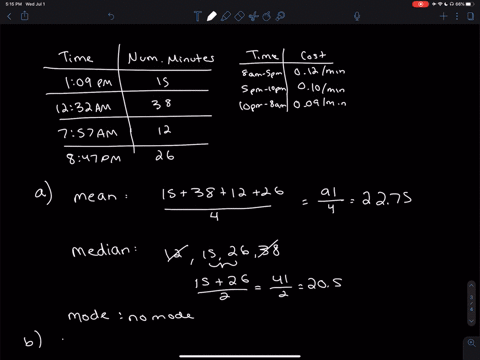 5:15 PM Wed Jul 1
66%
Time Num. Minutes
1:09 PM 15
12:32 AM 38
7:57 AM 12
8:47 PM 26
Time Cost
8am-5pm 0.12/min
5pm-10pm 0.10/min
10pm-8am 0.09/min
a) mean: 15+38+12+26 / 4 = 91/4 = 22.75
median: 12, 15, 26, 38
15+26 / 2 = 41/2 = 20.5
mode: no mode
b)